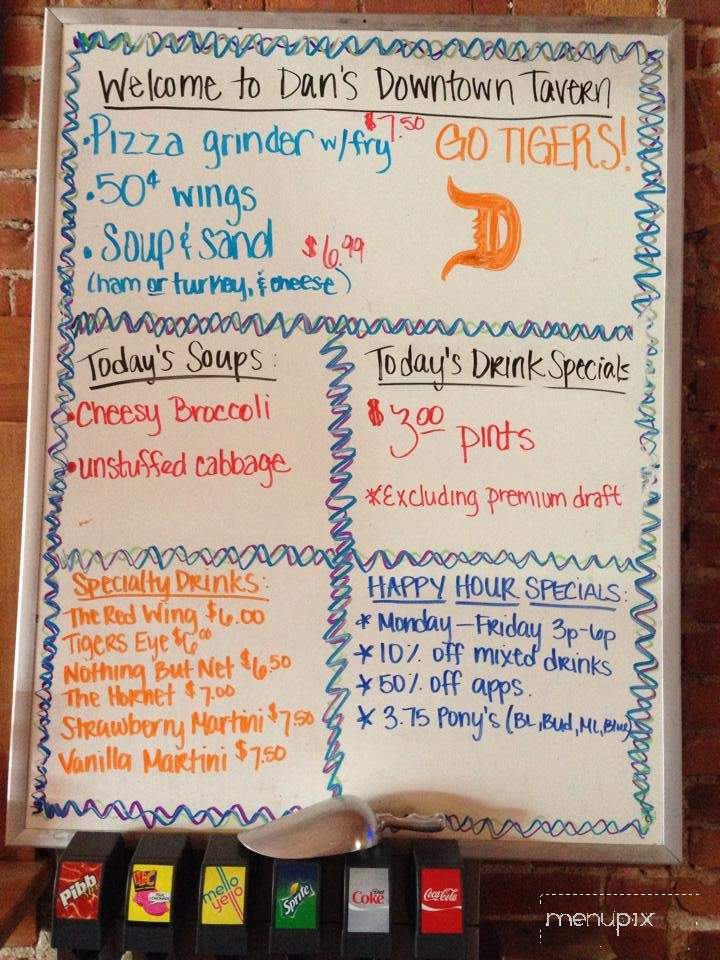 Welcome to Dan's Downtown Tavern
• Pizza grinder w/fry $7.50
GO TIGERS!
• 50¢ wings
D
• Soup & Sand $6.99
(ham or turkey, & cheese)
Today's Soups:
• Cheesy Broccoli
• unstuffed cabbage
Today's Drink Specials
$3.00 pints
*Excluding premium draft
Specialty Drinks:
The Red Wing $6.00
Tigers Eye $6.00
Nothing But Net $6.50
The Hornet $7.00
Strawberry Martini $7.50
Vanilla Martini $7.50
HAPPY HOUR SPECIALS:
* Monday - Friday 3p-6p
* 10% off mixed drinks
* 50% off apps.
* 3.75 Pony's (BL, Bud, ML, Blue)
Pibb
mello yello
Sprite
Diet Coke
Coca-Cola
menupix